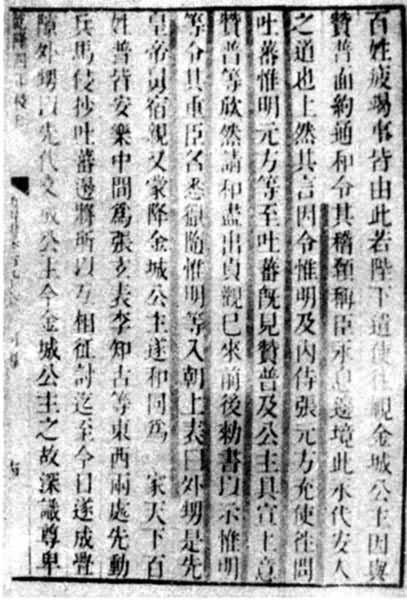 百姓疲竭事皆由此若陛下遣使往視金城公主因與
贊普面約通和令其稽顙稱臣永息邊境此永代安人
之道也上然其言因令惟明及內侍張元方充使往問
吐蕃惟明元方等至吐蕃既見贊普及公主具宣上意
贊普等欣然請和盡出貞觀已來前後勑書以示惟明
等令其重臣名悉獵隨惟明等入朝上表曰外甥是先
皇帝舅宿親又蒙降金城公主遂和同爲 家天下百
姓普皆安樂中間爲張玄表李知古等東西兩處先動
兵馬侵抄吐蕃邊將所以互相征討迄至今日遂成釁
隙外甥以先代文成公主今金城公主之故深識尊卑